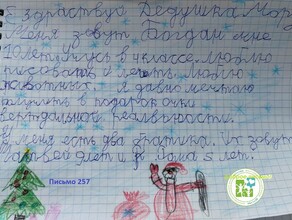 Здраствуй Дедушка Мороз
Меня зовут Богдан мне
10 лет, учусь в 4 классе. люблю
рисовать и лепить, люблю
животных. Я давно мечтаю
получить в подарок очки
вертуальной реальности.
У меня есть два братика. Их зовут
Матвей 9 лет и Рома 5 лет.
Письмо 257